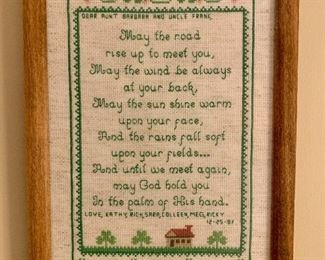 DEAR AUNT BARBARA AND UNCLE FRANK,
May the road
rise up to meet you,
May the wind be always
at your back,
May the sun shine warm
upon your face,
And the rains fall soft
upon your fields...
And until we meet again,
may God hold you
In the palm of His hand.
LOVE, KATHY, RICK, SARA, COLLEEN, MEG, RICKY
12-25-81